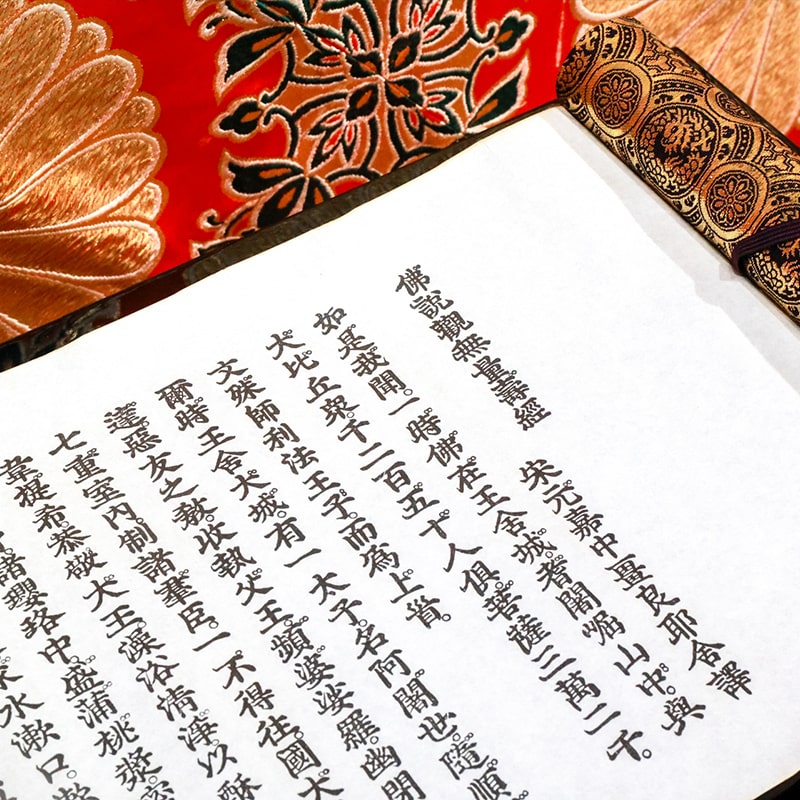 佛說觀無量壽經 宋元嘉中畺良耶舍譯
如是我聞。一時佛在王舍城。耆闍崛山中。與
大比丘衆。千二百五十人俱。菩薩三萬二千。
文殊師利法王子。而為上首。
爾時王舍大城。有一太子。名阿闍世。隨順
達惡友之敎。收執父王。頻婆娑羅。幽閉
七重室內。制諸羣臣。一不得往。國大
韋提希。恭敬大王。澡浴清淨。以酥
諸瓔珞中。盛蒲桃漿。密
水漱口。漱